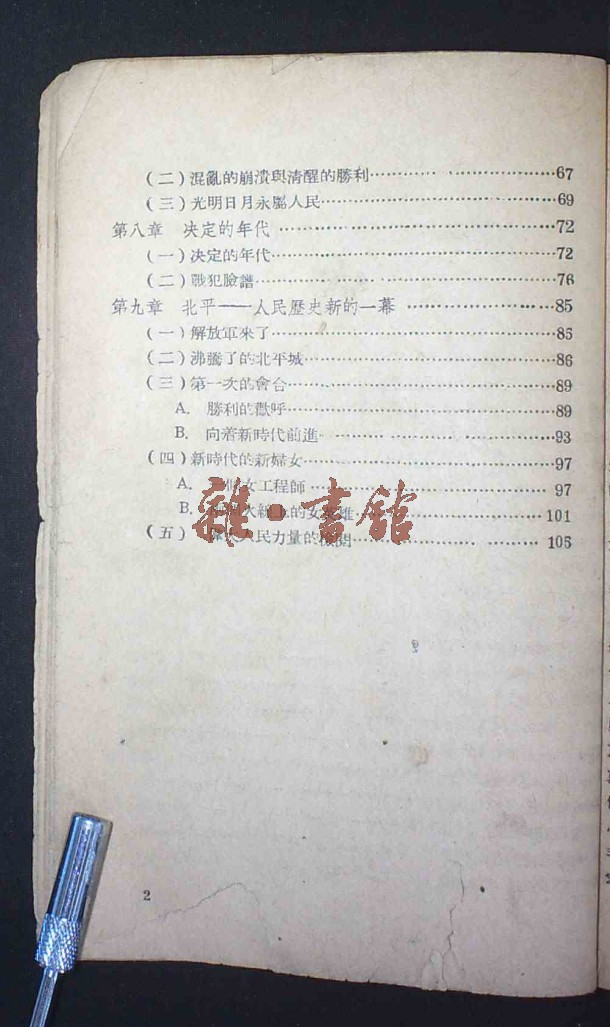 (二)混亂的崩潰與清醒的勝利……67
(三)光明日月永屬人民……69
第八章 决定的年代……72
(一)决定的年代……72
(二)戰犯臉譜……76
第九章 北平——人民歷史新的一幕……85
(一)解放軍來了……85
(二)沸騰了的北平城……86
(三)第一次的會合……89
A. 勝利的歡呼……89
B. 向着新時代前進……93
(四)新時代的新婦女……97
A. 女工程師……97
B. 火線上的女英雄……101
(五) 人民力量的檢閱……105
雜·書館
2